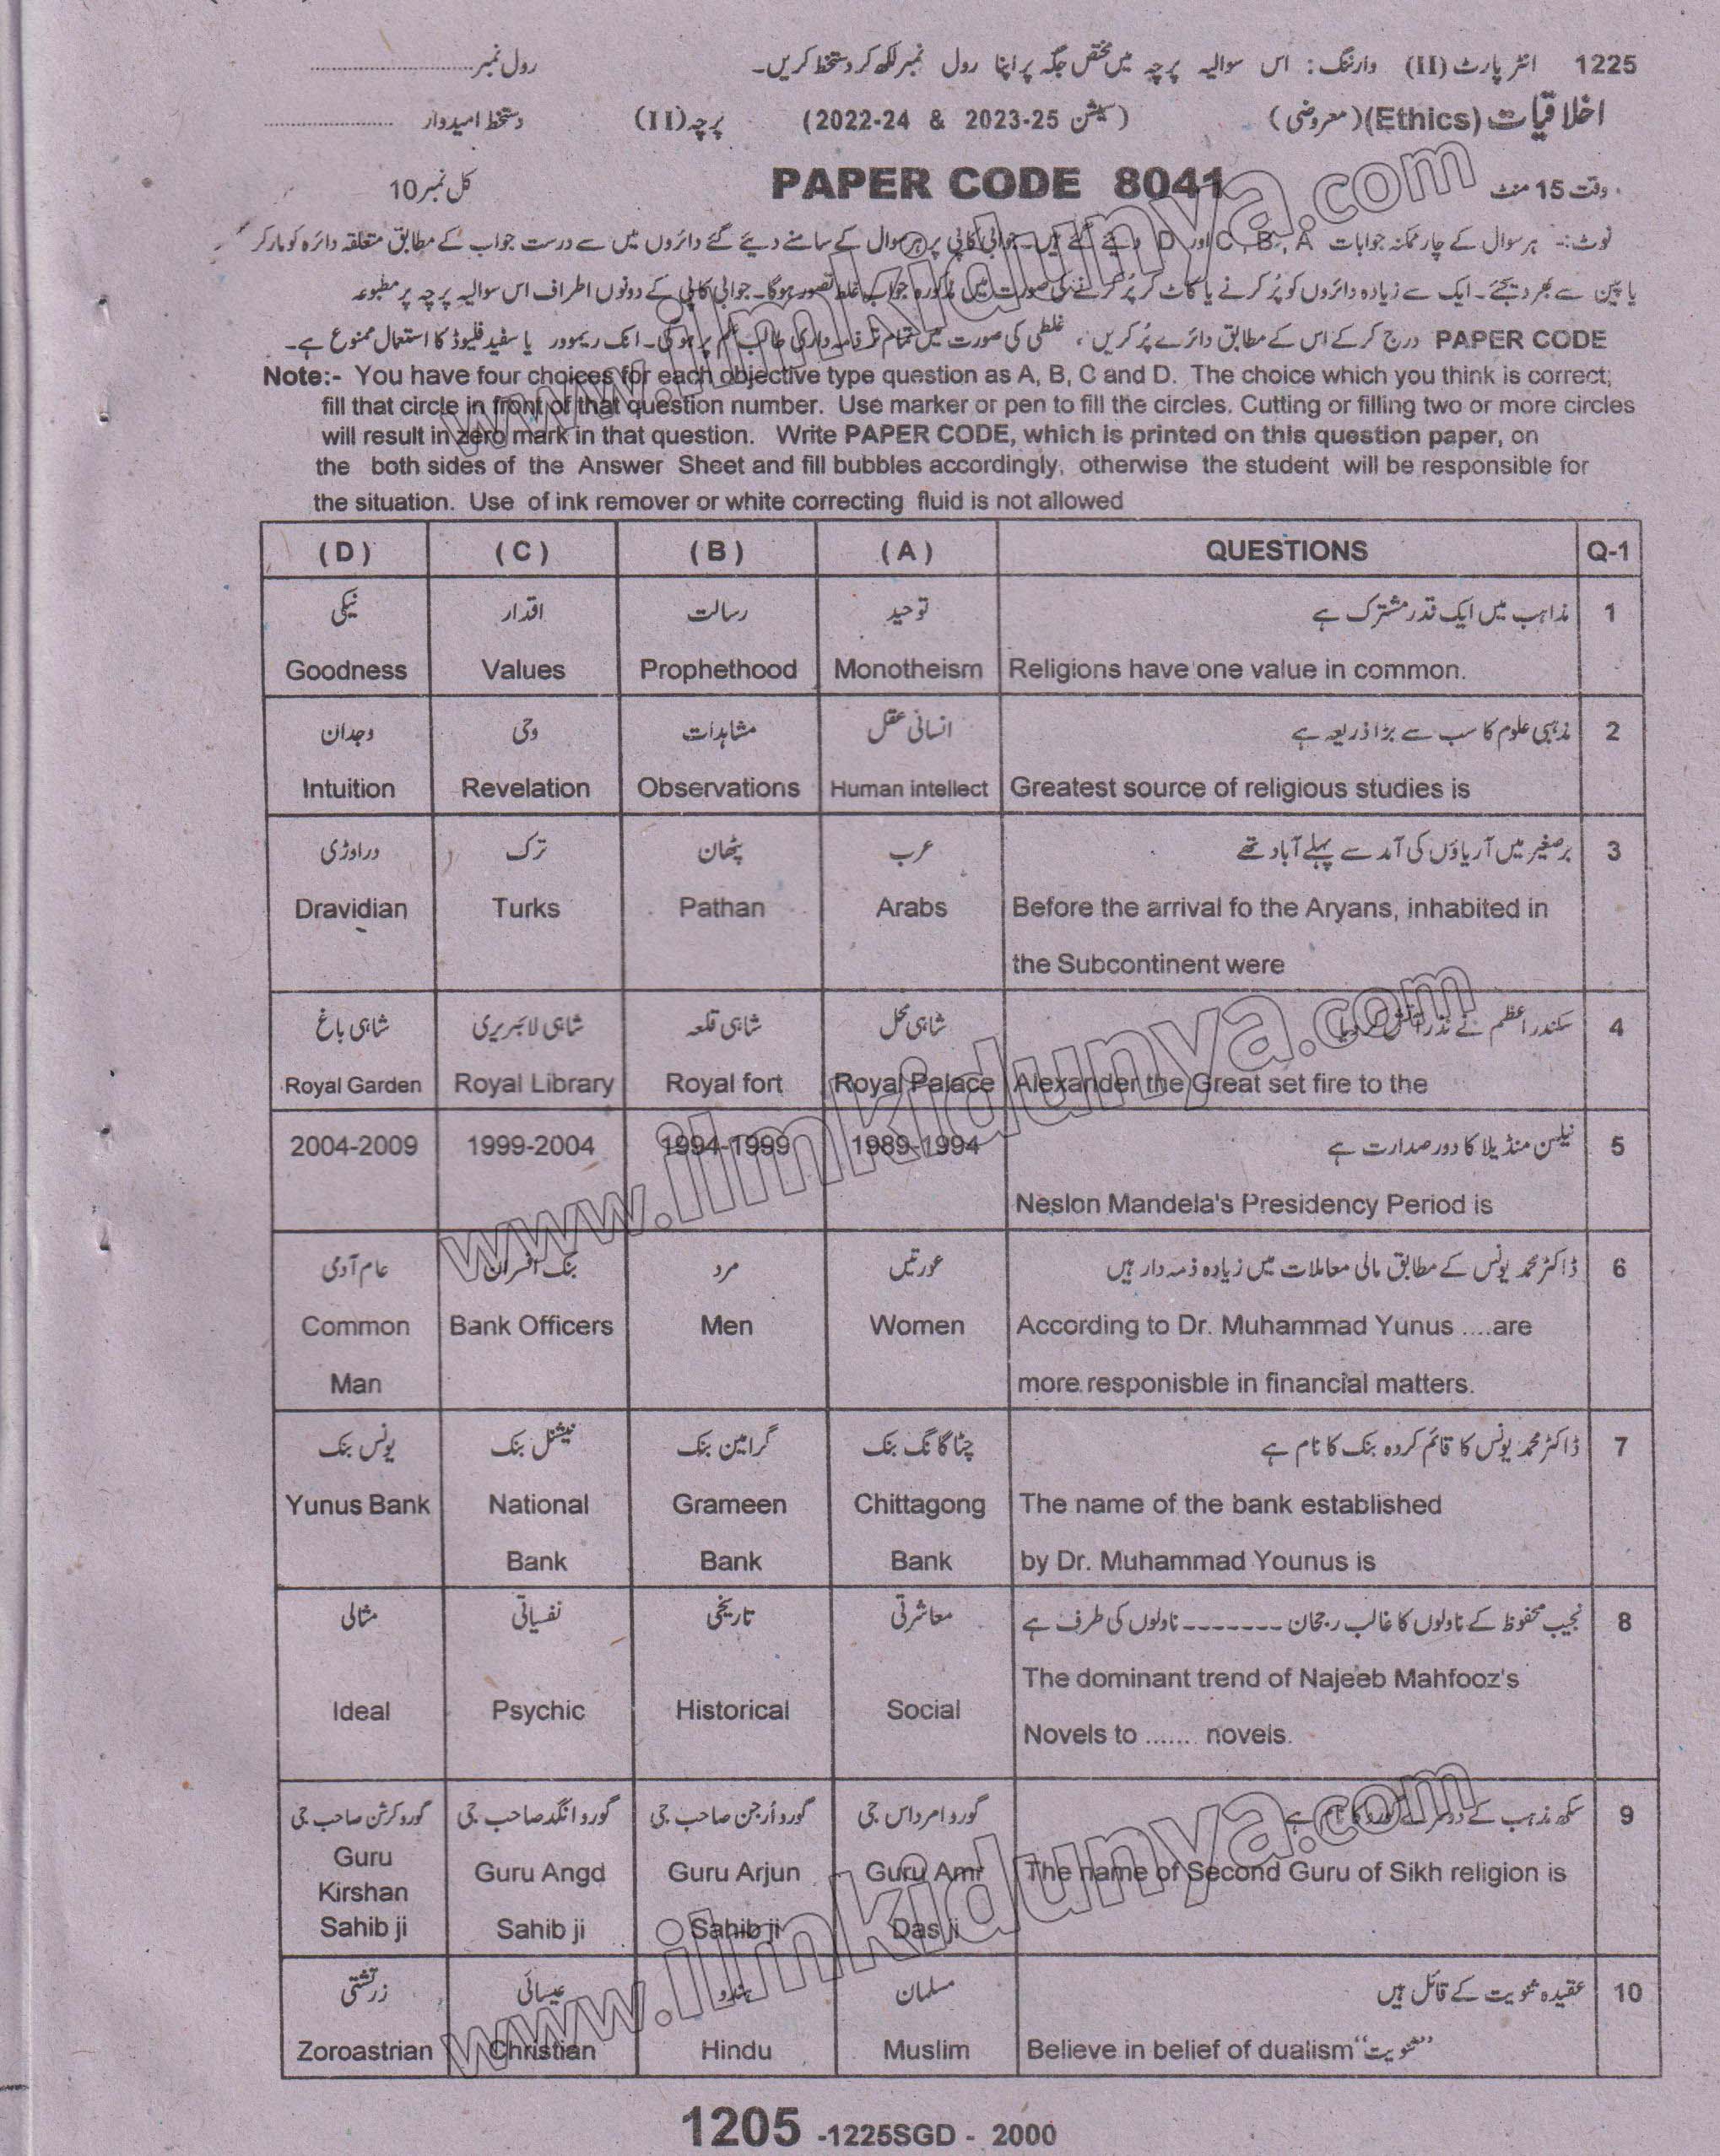 1225 انٹر پارٹ (II) وارننگ: اس سوالیہ پرچہ میں مختص جگہ پر اپنا رول نمبر لکھ کر دستخط کریں۔ رول نمبر
اخلاقیات (Ethics) (معروضی) (سیشن 2022-24 & 2023-25) پرچہ (II) دستخط امیدوار
وقت 15 منٹ PAPER CODE 8041 کل نمبر 10
نوٹ:- ہر سوال کے چار ممکنہ جوابات A ، B ، C اور D دیئے گئے ہیں۔ جوابی کاپی پر ہر سوال کے سامنے دیئے گئے دائروں میں سے درست جواب کے مطابق متعلقہ دائرہ کو مارکر
یا پین سے بھر دیجئے۔ ایک سے زیادہ دائروں کو پُر کرنے یا کاٹ کر پُر کرنے کی صورت میں مذکورہ جواب غلط تصور ہوگا۔ جوابی کاپی کے دونوں اطراف اس سوالیہ پرچہ پر مطبوعہ
PAPER CODE درج کر کے اس کے مطابق دائرے پُر کریں، غلطی کی صورت میں تمام تر ذمہ داری طالب علم پر ہوگی۔ انک ریموور یا سفید فلیوڈ کا استعمال ممنوع ہے۔
Note:- You have four choices for each objective type question as A, B, C and D. The choice which you think is correct;
fill that circle in front of that question number. Use marker or pen to fill the circles. Cutting or filling two or more circles
will result in zero mark in that question. Write PAPER CODE, which is printed on this question paper, on
the both sides of the Answer Sheet and fill bubbles accordingly, otherwise the student will be responsible for
the situation. Use of ink remover or white correcting fluid is not allowed
(D) (C) (B) (A) QUESTIONS Q-1
نیکی اقدار رسالت توحید مذاہب میں ایک قدر مشترک ہے 1
Goodness Values Prophethood Monotheism Religions have one value in common.
وجدان وحی مشاہدات انسانی عقل مذہبی علوم کا سب سے بڑا ذریعہ ہے 2
Intuition Revelation Observations Human intellect Greatest source of religious studies is
دراوڑی ترک پٹھان عرب برصغیر میں آریاؤں کی آمد سے پہلے آباد تھے 3
Dravidian Turks Pathan Arabs Before the arrival fo the Aryans, inhabited in
the Subcontinent were
شاہی باغ شاہی لائبریری شاہی قلعہ شاہی محل سکندر اعظم نے نذر آتش کر دیا 4
Royal Garden Royal Library Royal fort Royal Palace Alexander the Great set fire to the
2004-2009 1999-2004 1994-1999 1989-1994 نیلسن منڈیلا کا دور صدارت ہے 5
Neslon Mandela's Presidency Period is
عام آدمی بنک افسران مرد عورتیں ڈاکٹر محمد یونس کے مطابق مالی معاملات میں زیادہ ذمہ دار ہیں 6
Common Bank Officers Men Women According to Dr. Muhammad Yunus ....are
Man more responisble in financial matters.
یونس بنک نیشنل بنک گرامین بنک چٹاگانگ بنک ڈاکٹر محمد یونس کا قائم کردہ بنک کا نام ہے 7
Yunus Bank National Grameen Chittagong The name of the bank established
Bank Bank Bank by Dr. Muhammad Younus is
مثالی نفسیاتی تاریخی معاشرتی نجیب محفوظ کے ناولوں کا غالب رجحان ------- ناولوں کی طرف ہے 8
The dominant trend of Najeeb Mahfooz's
Ideal Psychic Historical Social
Novels to ...... novels.
گورو کرشن صاحب جی گورو انگد صاحب جی گورو ارجن صاحب جی گورو امر داس جی سکھ مذہب کے دوسرے گورو کا نام ہے 9
Guru Kirshan Guru Angd Guru Arjun Guru Amr The name of Second Guru of Sikh religion is
Sahib ji Sahib ji Sahib ji Das ji
زرتشتی عیسائی ہندو مسلمان عقیدہ ثنویت کے قائل ہیں 10
Zoroastrian Christian Hindu Muslim Believe in belief of dualism "ثنویت"
1205 -1225SGD - 2000
www.ilmkidunya.com
www.ilmkidunya.com
www.ilmkidunya.com